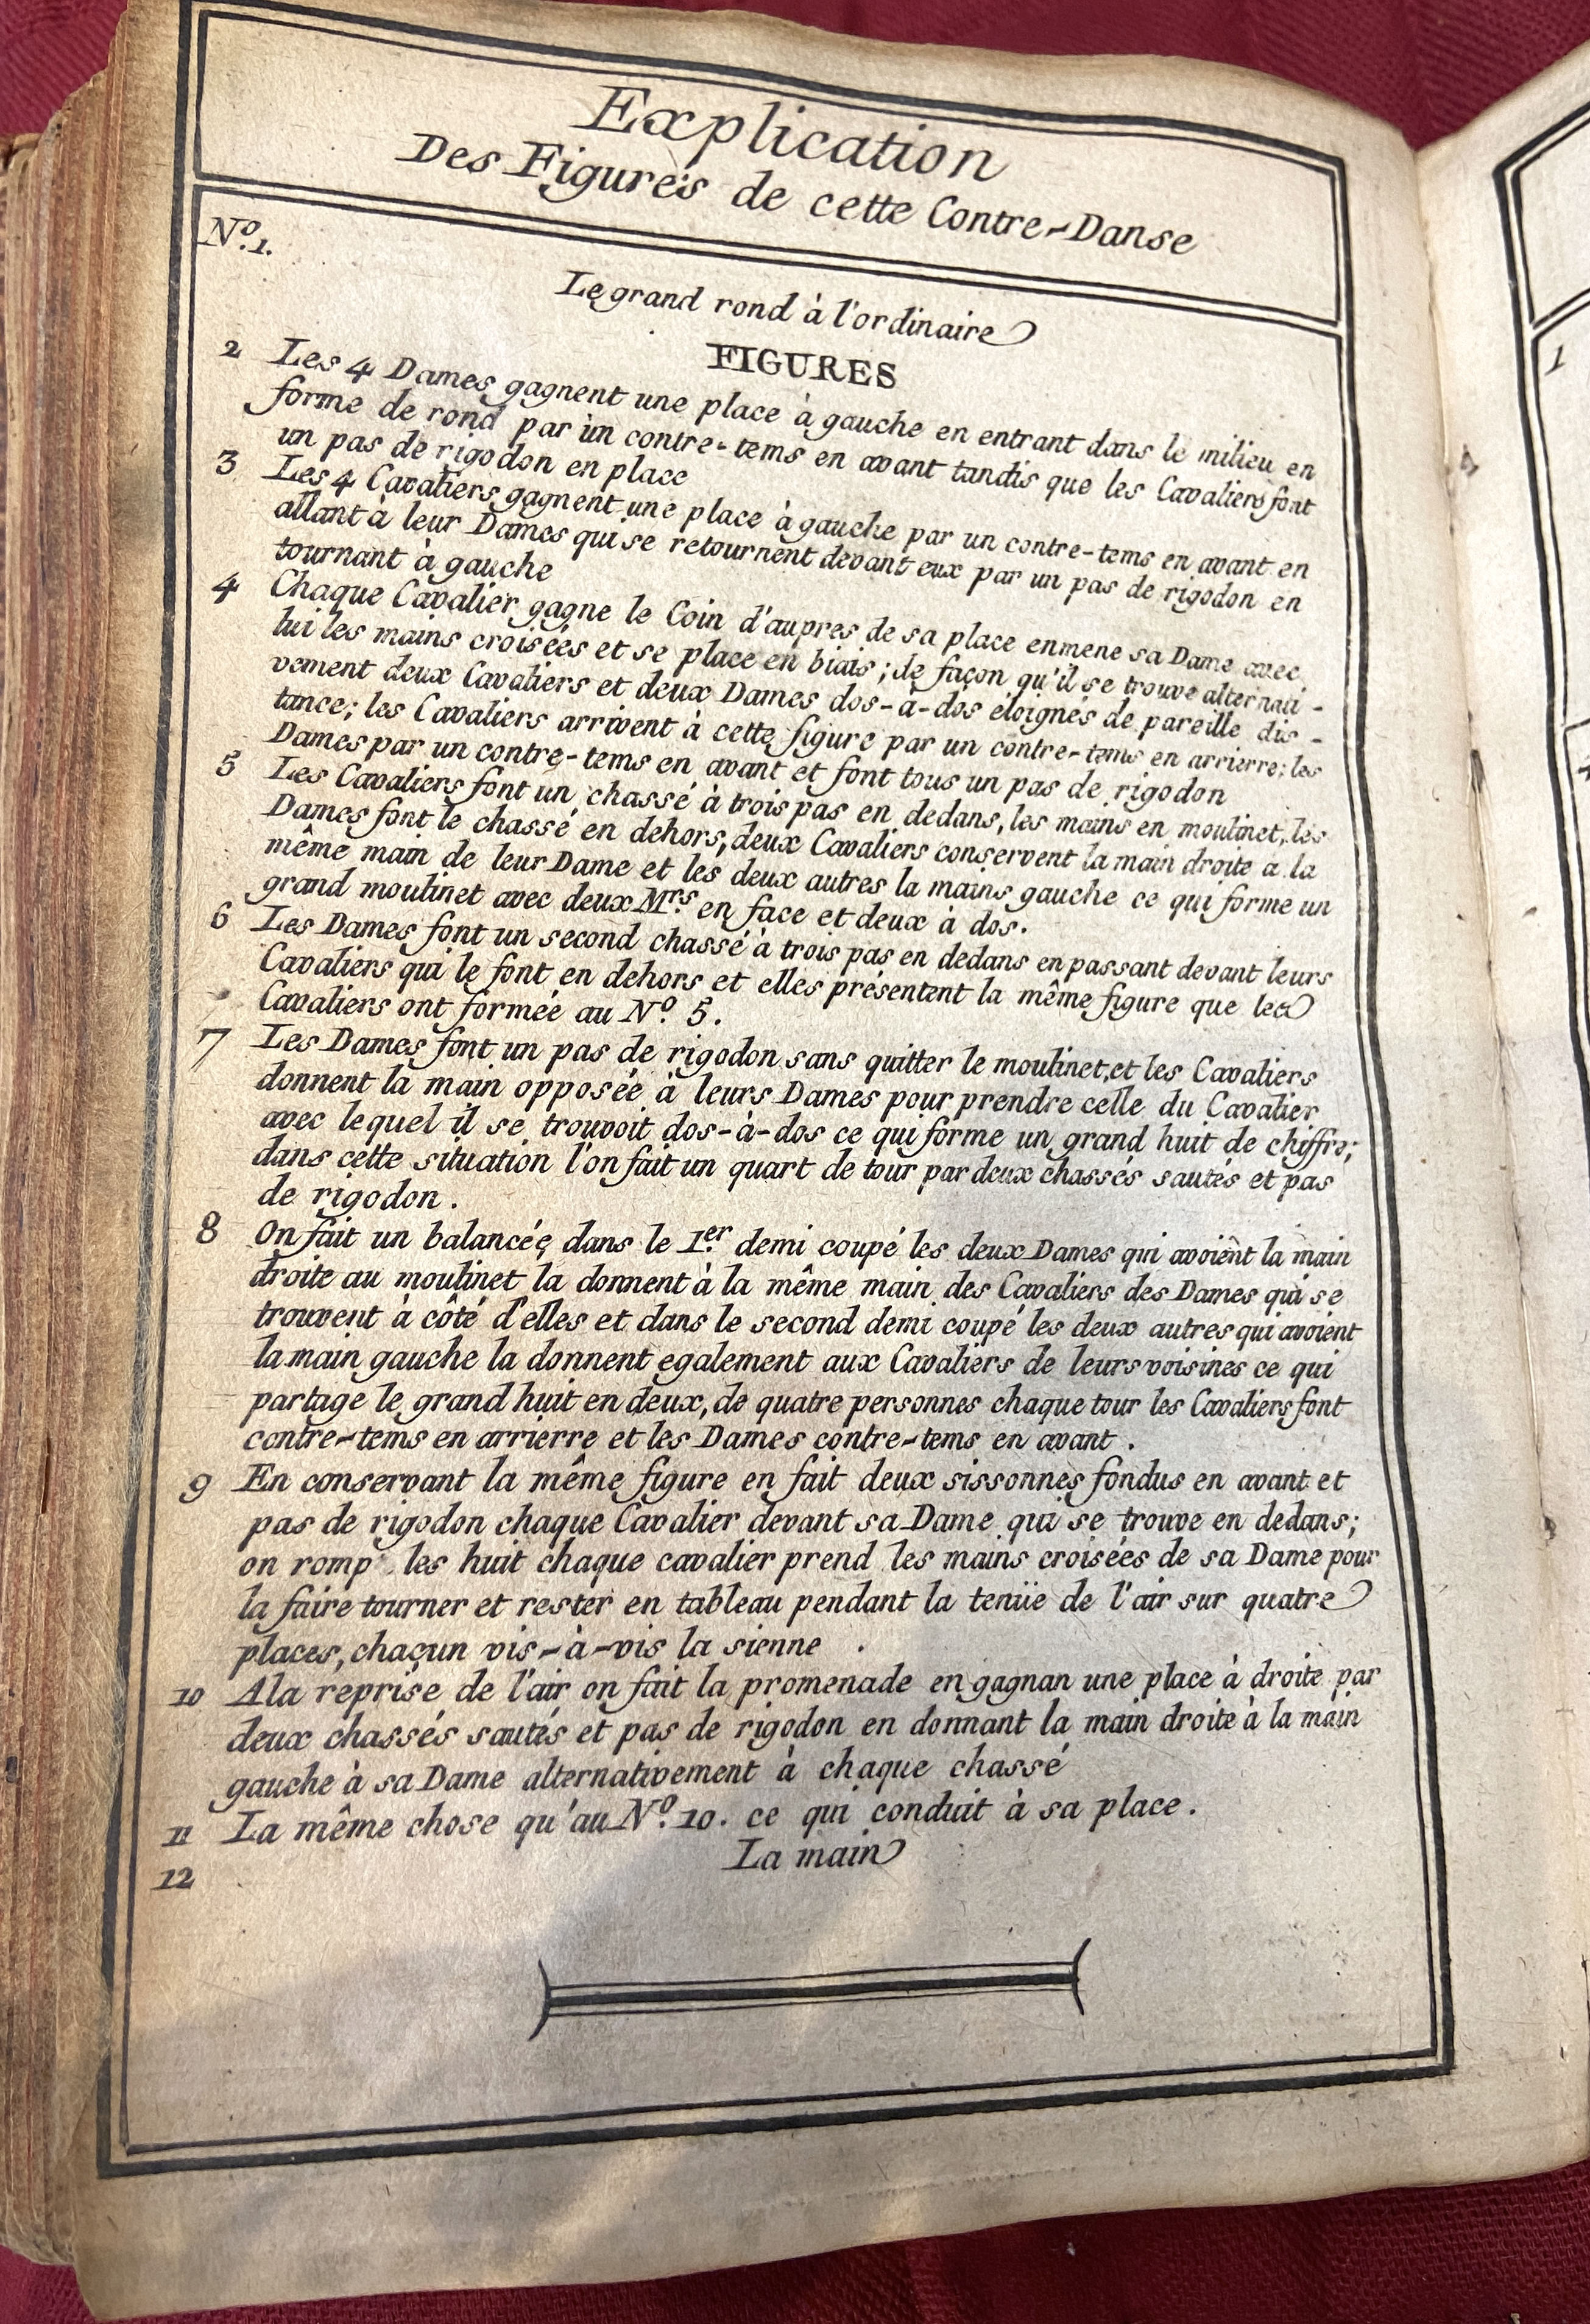 Explication
Des Figures de cette Contre-Danse
Nº. 1.
Le grand rond à l'ordinaire
FIGURES
2 Les 4 Dames gagnent une place à gauche en entrant dans le milieu en
forme de rond par un contre-tems en avant tandis que les Cavaliers font
un pas de rigodon en place
3 Les 4 Cavaliers gagnent une place à gauche par un contre-tems en avant en
allant à leur Dames qui se retournent devant eux par un pas de rigodon en
tournant à gauche
4 Chaque Cavalier gagne le Coin d'aupres de sa place enmene sa Dame avec
lui les mains croisées et se place en biais; de façon qu'il se trouve alternati-
vement deux Cavaliers et deux Dames dos-à-dos éloignés de pareille dis-
tance; les Cavaliers arrivent à cette figure par un contre-tems en arrierre; les
Dames par un contre-tems en avant et font tous un pas de rigodon
5 Les Cavaliers font un chassé à trois pas en dedans, les mains en moulinet, les
Dames font le chassé en dehors, deux Cavaliers conservent la main droite a la
même main de leur Dame et les deux autres la mains gauche ce qui forme un
grand moulinet avec deux Mrs. en face et deux à dos.
6 Les Dames font un second chassé à trois pas en dedans en passant devant leurs
Cavaliers qui le font en dehors et elles présentent la même figure que les
Cavaliers ont formée au Nº. 5.
7 Les Dames font un pas de rigodon sans quitter le moulinet, et les Cavaliers
donnent la main opposée à leurs Dames pour prendre celle du Cavalier
avec lequel il se trouvoit dos-à-dos ce qui forme un grand huit de chiffre;
dans cette situation l'on fait un quart de tour par deux chassés sautés et pas
de rigodon.
8 On fait un balancée dans le 1er. demi coupé les deux Dames qui avoient la main
droite au moulinet la donnent à la même main des Cavaliers des Dames qui se
trouvent à côté d'elles et dans le second demi coupé les deux autres qui avoient
la main gauche la donnent egalement aux Cavaliers de leurs voisines ce qui
partage le grand huit en deux, de quatre personnes chaque tour les Cavaliers font
contre-tems en arrierre et les Dames contre-tems en avant.
9 En conservant la même figure en fait deux sissonnes fondus en avant et
pas de rigodon chaque Cavalier devant sa Dame qui se trouve en dedans;
on romp les huit chaque cavalier prend les mains croisées de sa Dame pour
la faire tourner et rester en tableau pendant la tenüe de l'air sur quatre
places, chacun vis-à-vis la sienne.
10 A la reprise de l'air on fait la promenade en gagnan une place à droite par
deux chassés sautés et pas de rigodon en donnant la main droite à la main
gauche à sa Dame alternativement à chaque chassé
11 La même chose qu'au Nº. 10. ce qui conduit à sa place.
12 La main
1